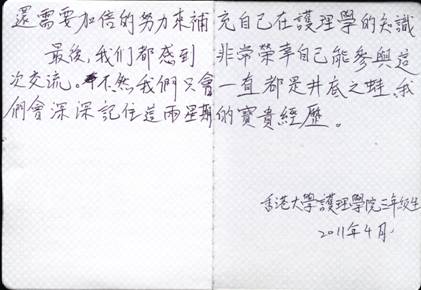 還需要加倍的努力來補充自己在護理學的知識
最後,我们都感到非常榮幸自己能參與這
次交流。不然,我們只會一直都是井底之蛙,我
們會深深記住這兩星期的寶貴經歷。
香港大學護理學院三年級生
2011年4月